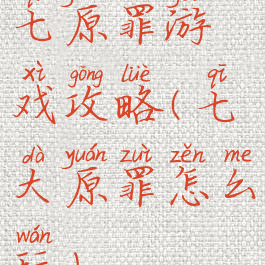 七原罪游
xì gōng lüè qī
戏攻略(七
dà yuán zuì zěn me
大原罪怎么
wán